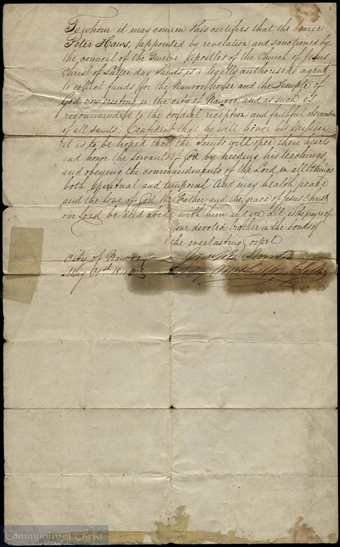 To whom it may concern This certifies that the bearer
Peter Haws, appointed by revelation, and sanctioned by
the council of the Twelve Apostles of the Church of Jesus
Christ of Latter day Saints, is a legally authorised agent
to collect funds for the Nauvoo house and the Temple of
God now erecting in the city of Nauvoo, and as such is
recommended to the cordial reception and faithful
of all saints. Confident that he will honor his
it is to be hoped that the Saints will open their hearts
and honor the servant of God by heeding his teachings
and obeying the commandments of the Lord in all things
both spiritual and temporal And may health peace
and the love of God the Father and the grace of Jesus Christ
our Lord be and abide with him and
Your devoted brother in the bonds of
the everlasting gospel
City of Nauvoo
May
Community of Christ